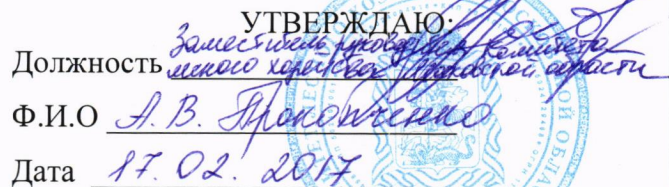 УТВЕРЖДАЮ:
Должность Заместитель руководителя Комитета
лесного хозяйства Московской области
Ф.И.О А. В. Прокопченко
Дата 17.02.2017